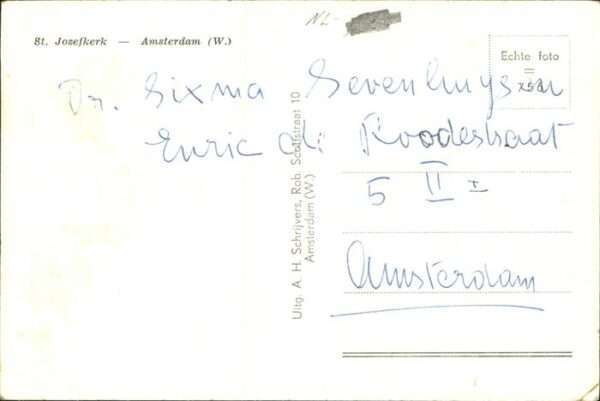 NL-
St. Jozefkerk — Amsterdam (W.)
Echte foto
=
Dr. Sixma Sevenhuysen
Enric
Roodestraat
5 II I
Amsterdam
Uitg. A. H. Schrijvers, Rob. Scottstraat 10
Amsterdam (W.)